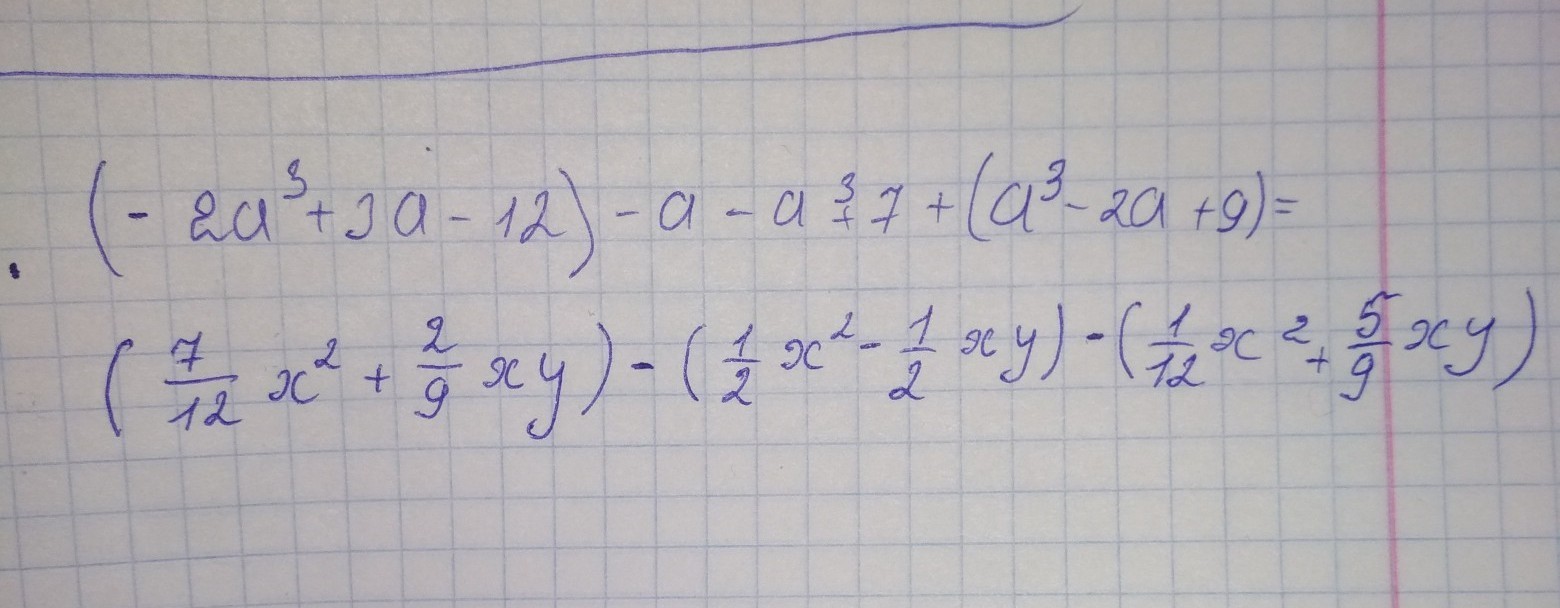 (- 2a³ + 3a - 12) - a - a³ + 7 + (a³ - 2a + 9) =
(7/12 x² + 2/9 xy) - (1/2 x² - 1/2 xy) - (1/12 x² + 5/9 xy)